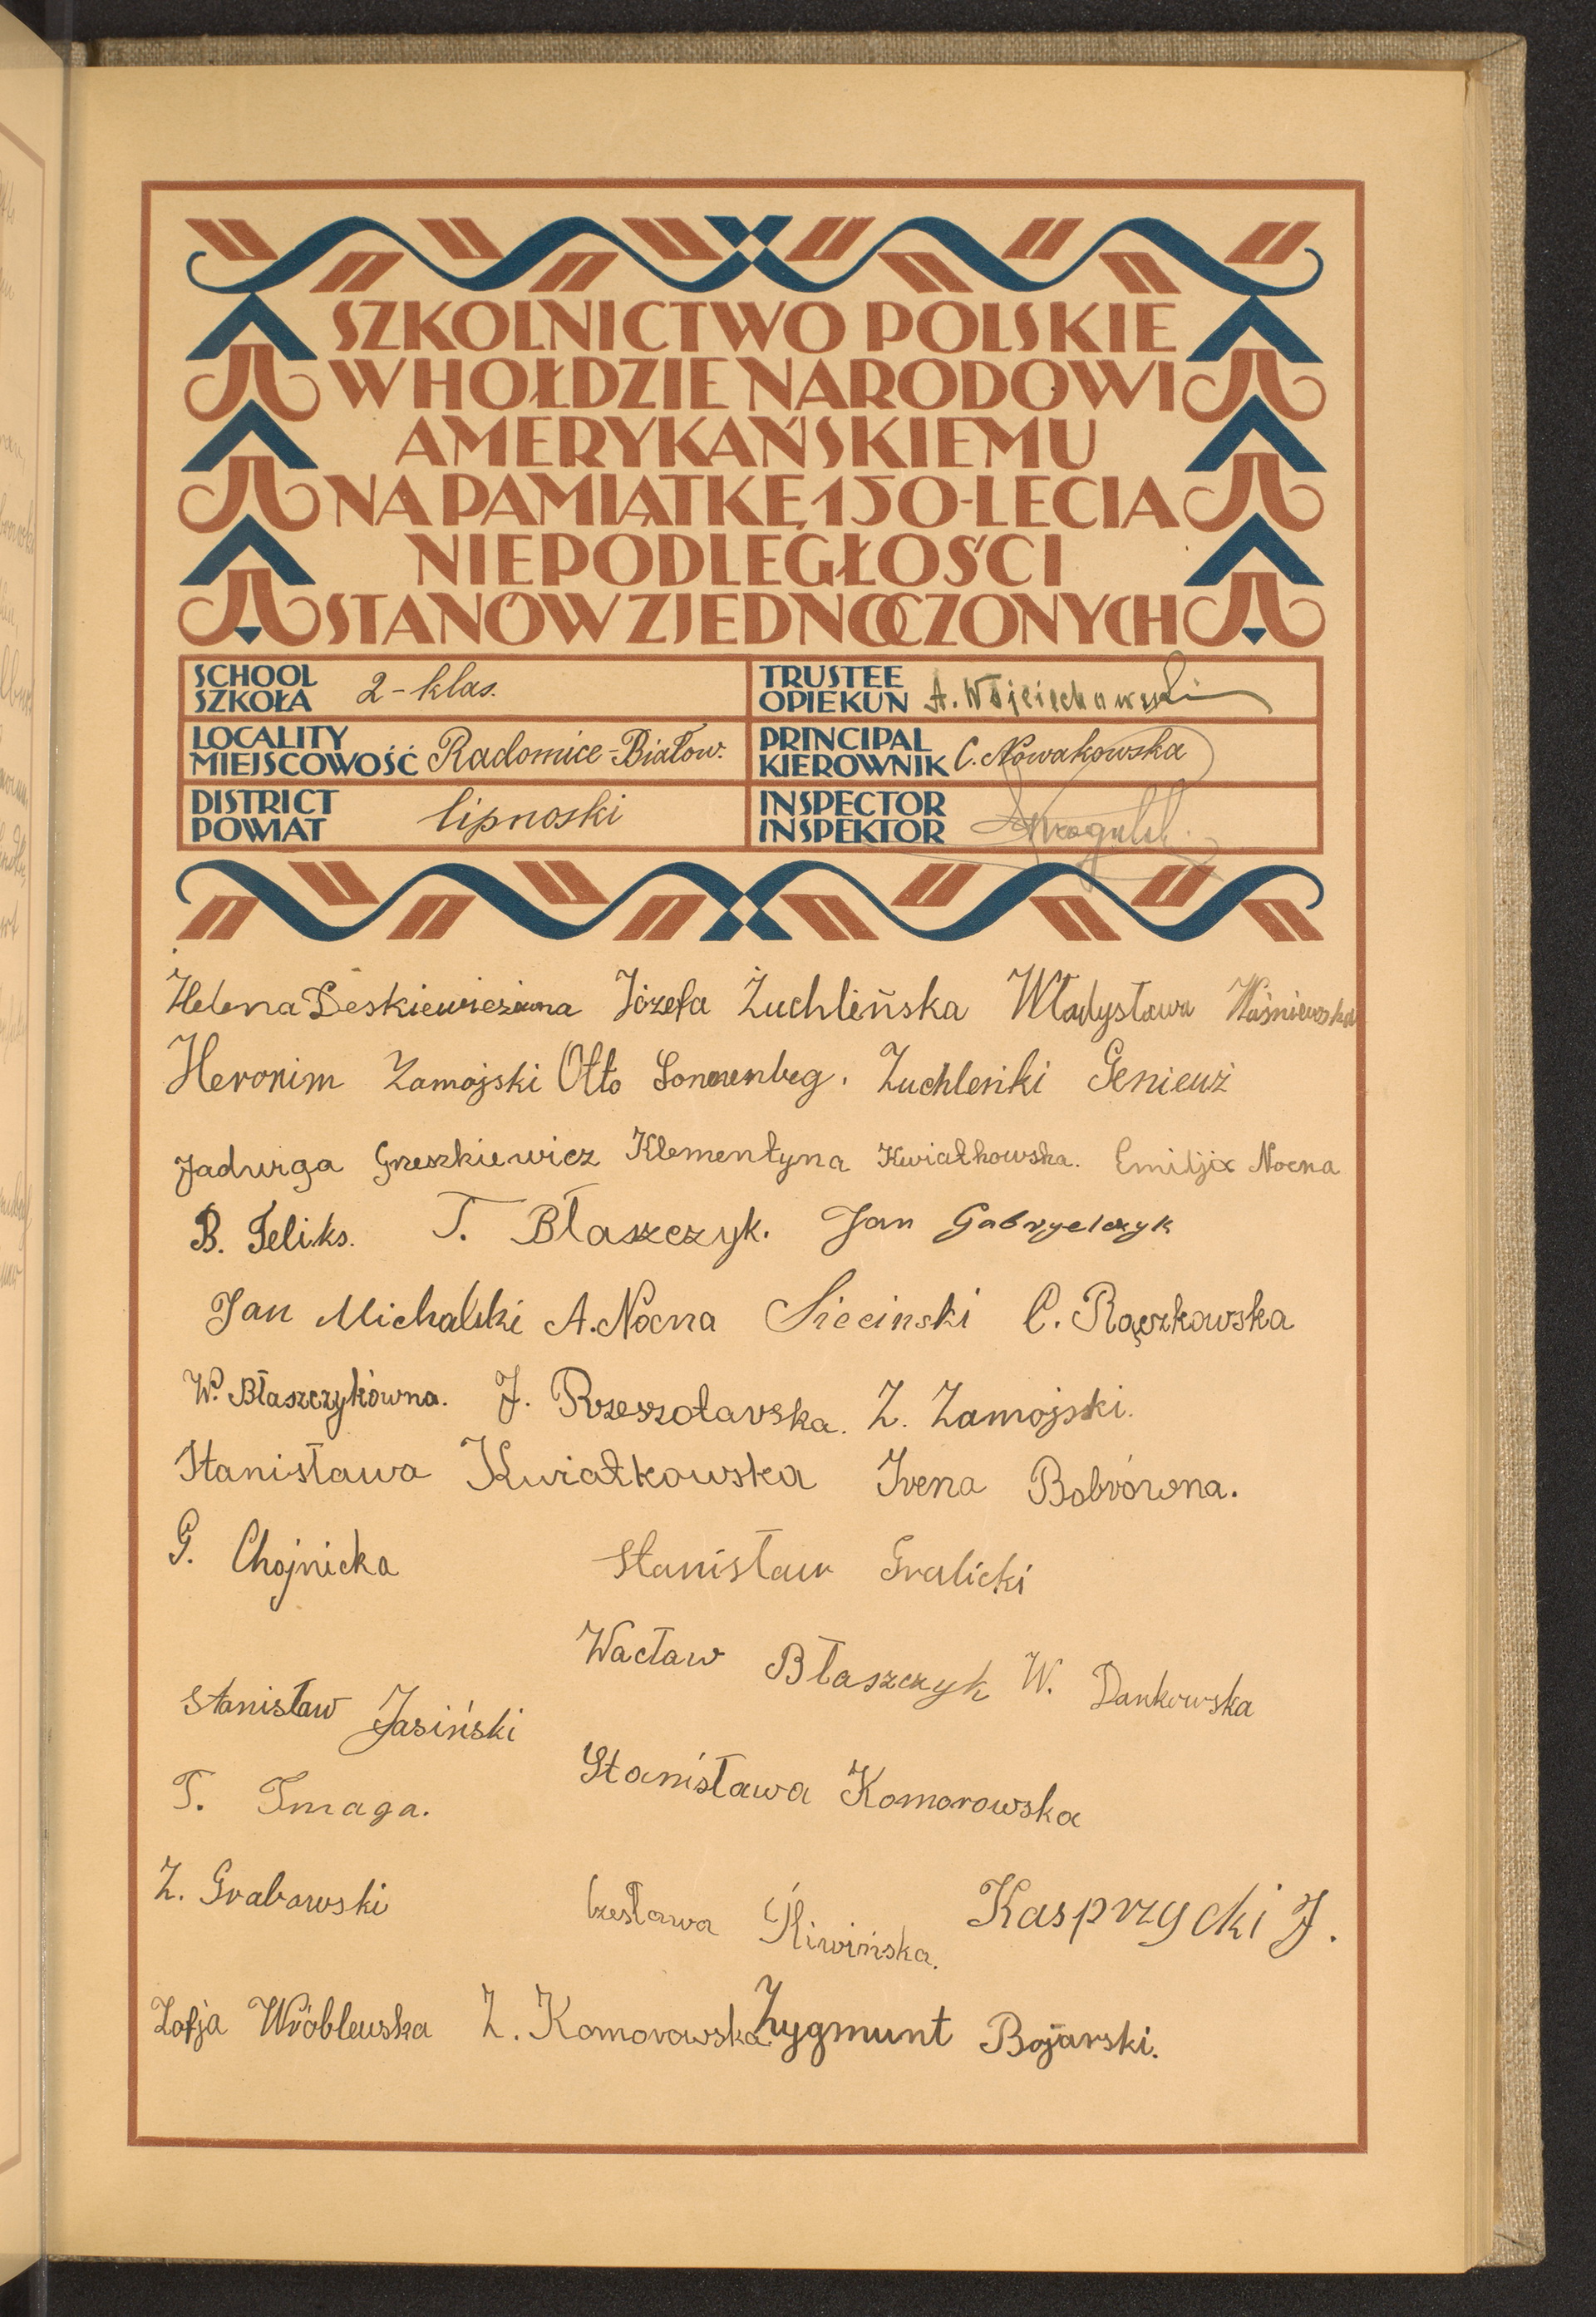 SZKOLNICTWO POLSKIE
W HOŁDZIE NARODOWI
AMERYKAŃSKIEMU
NA PAMIĄTKĘ 150-LECIA
NIEPODLEGŁOŚCI
STANÓW ZJEDNOCZONYCH
SCHOOL SZKOŁA 2-klas.
TRUSTEE OPIEKUN A. Wojciechowski
LOCALITY MIEJSCOWOŚĆ Radomice-Białow.
PRINCIPAL KIEROWNIK C. Nowakowska
DISTRICT POWIAT lipnoski
INSPECTOR INSPEKTOR
Helena Józefa Żuchlińska Władysława Waśniewska
Heronim Zamojski Otto Zuchleński Genieuż
Jadwiga Greszkiewicz Klementyna Kwiatkowska. Emilja Nocna
B. Feliks. T. Błaszczyk. Jan Gabryelczyk
Jan Michalski A. Nocna Siecinski C. Rączkowska
W. Błaszczykówna. J. Rzeszotarska. Z. Zamojski.
Stanisława Kwiatkowska Irena Bobrówna.
G. Chojnicka Stanisław Gralicki
Wacław Błaszczyk W. Dankowska
Stanisław Jasiński
Stanisława Komorowska
T. Smaga.
Z. Grabowski Czesława Śliwińska. Kasprzycki J.
Zofja Wróblewska Z. Komorowska. Zygmunt Bojarski.